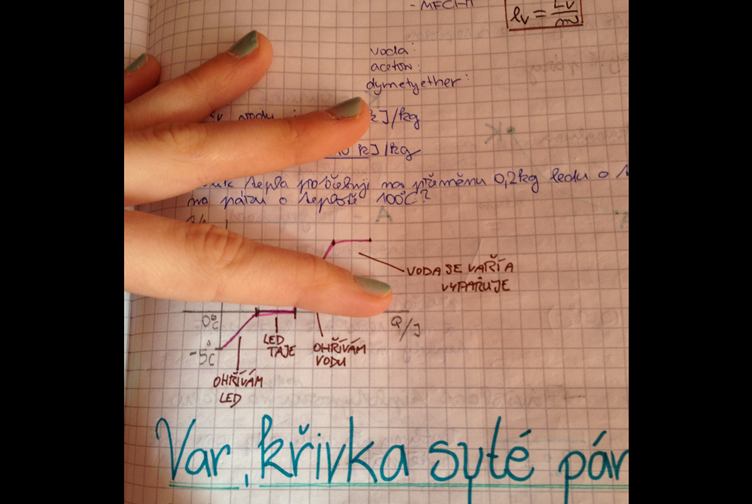 - MECHA
lv = Lv/m
voda:
aceton:
dymetyether:
vodu kJ/kg
kJ/kg
tepla potřebuji na přeměnu 0,2kg ledu o
na páru o teplotě 100°C?
VODA SE VAŘÍ A
VYPAŘUJE
0°C
Q/J
-5°C
LED
TAJE
OHŘÍVÁM
VODU
OHŘÍVÁM
LED
Var, křivka syté pár